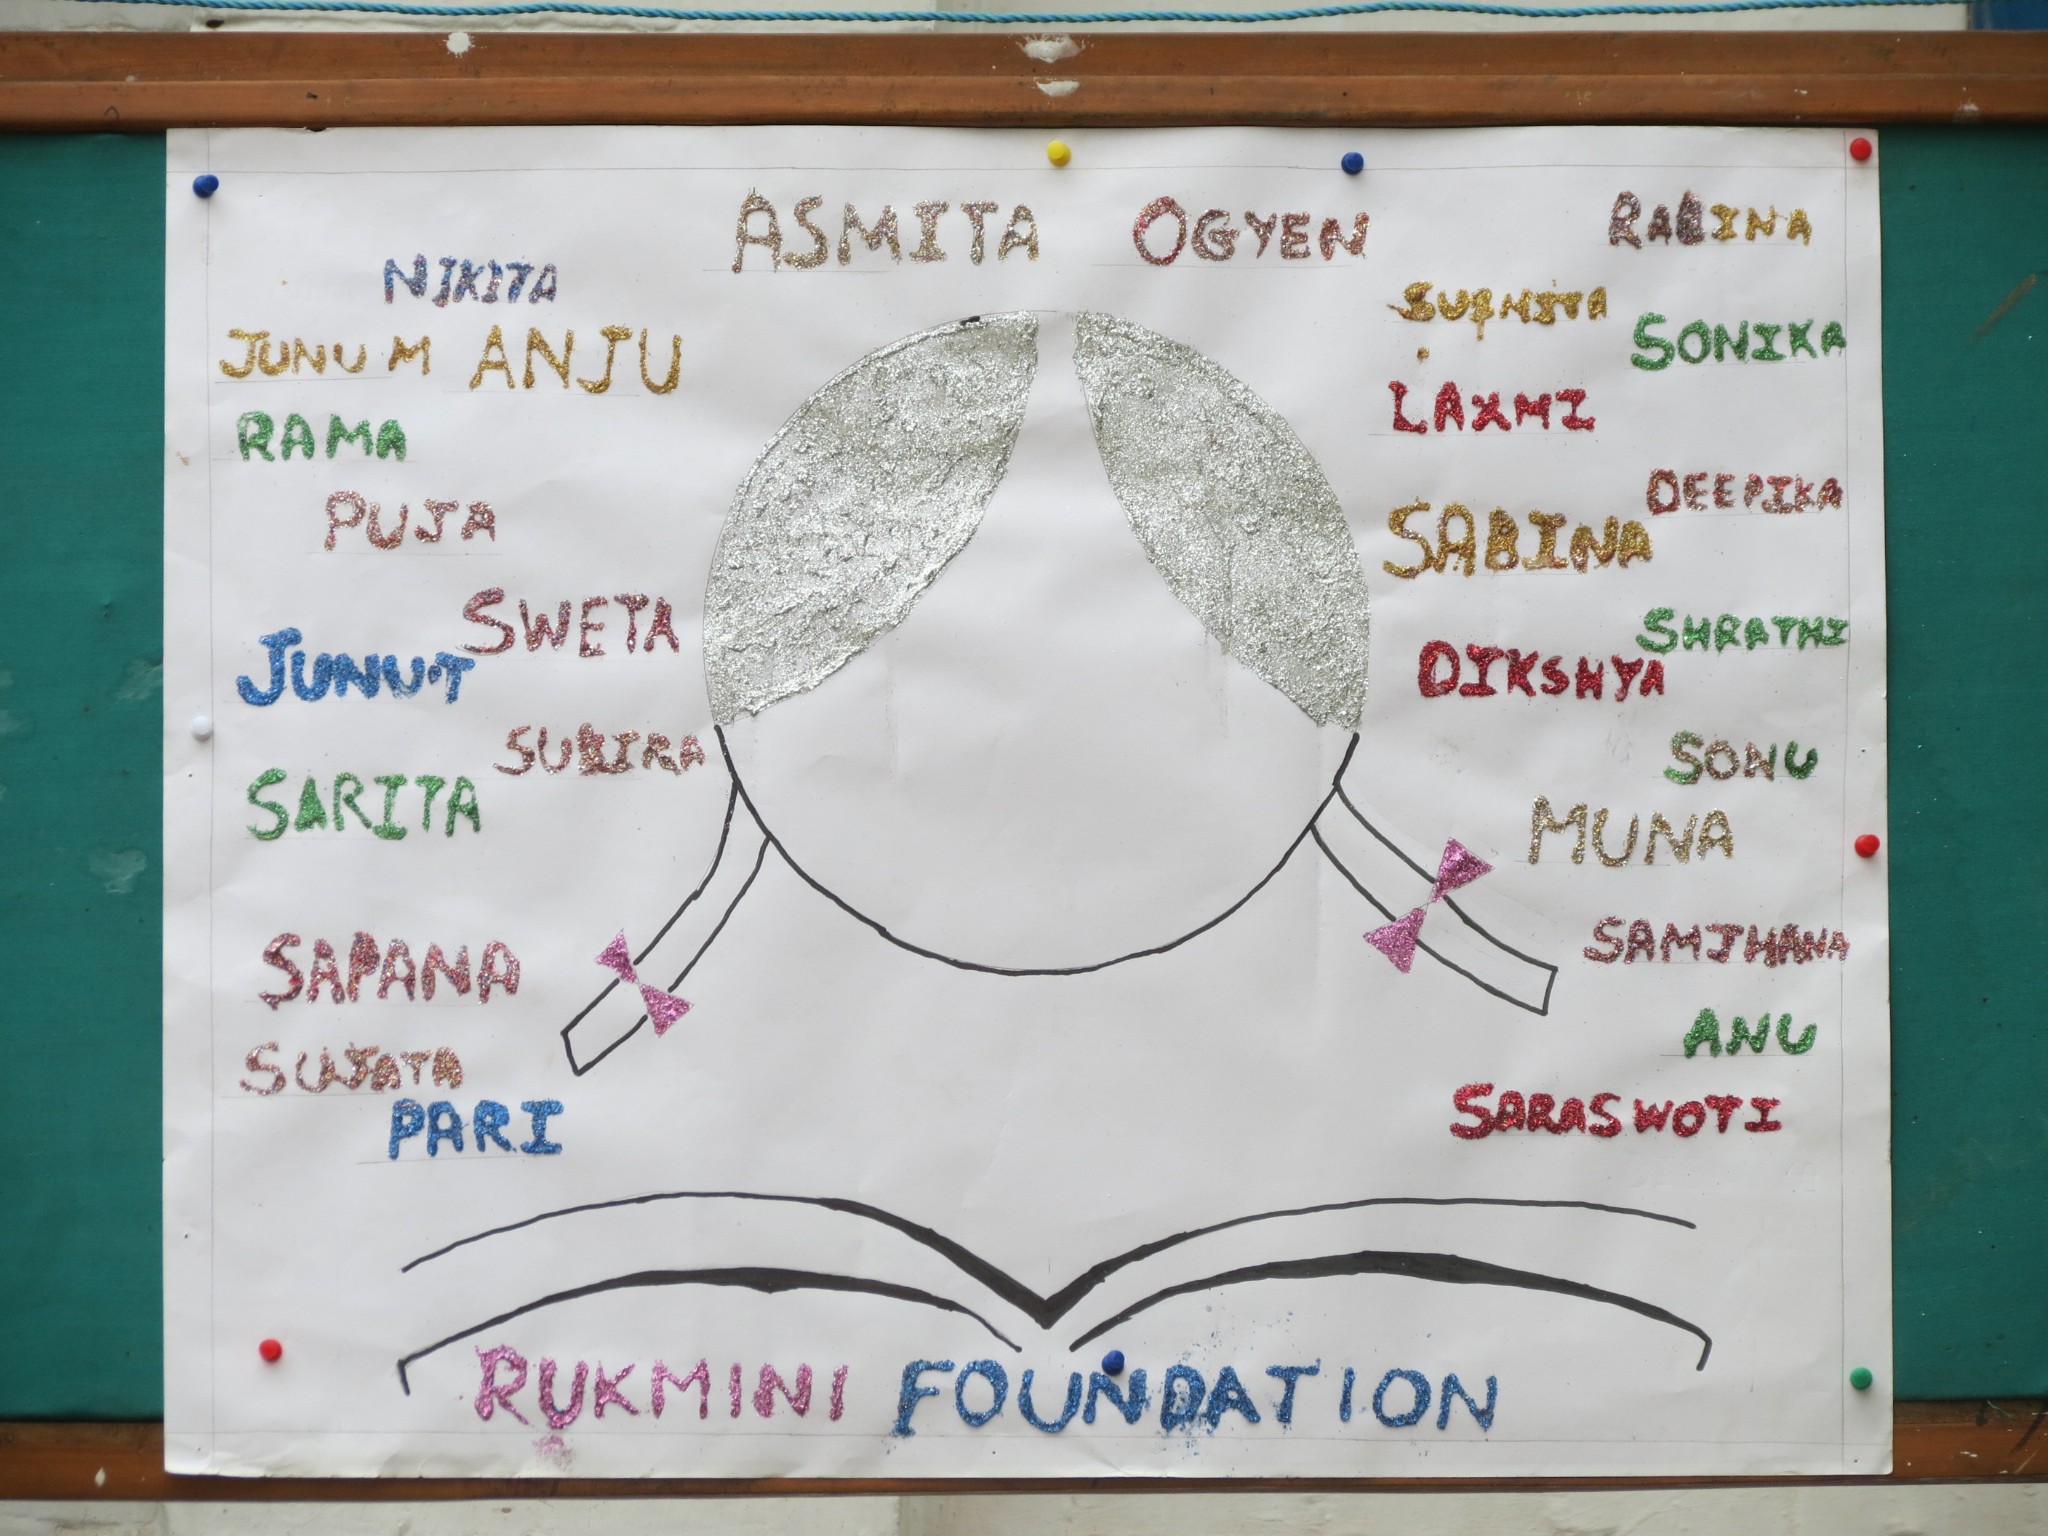 ASMITA OGYEN
NIKITA
JUNUM ANJU
RAMA
PUJA
SWETA
JUNUT
SUBIRA
SARITA
SAPANA
SUJATA
PARI
RABINA
SONIKA
LAXMI
DEEPIKA
SABINA
SHRATHI
DIKSHYA
SONU
MUNA
SAMJHANA
ANU
SARASWOTI
RUKMINI FOUNDATION